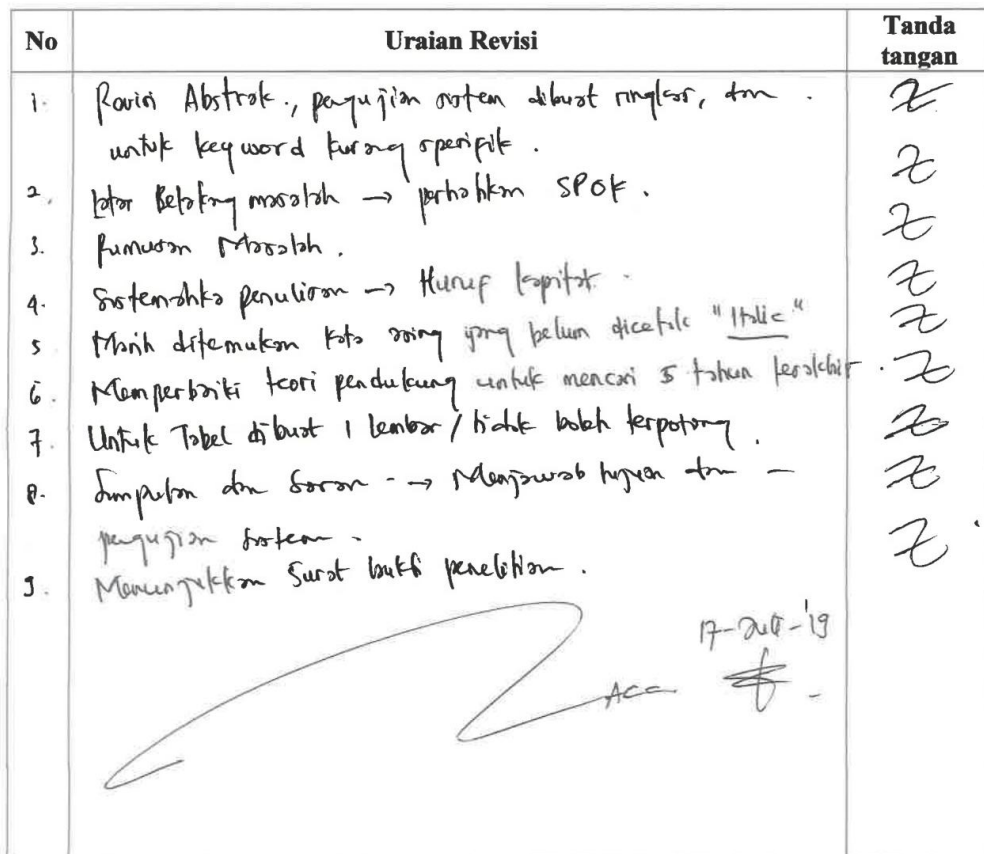 No Uraian Revisi Tanda tangan
1. Revisi Abstrak., pengujian sistem dibuat ringkas, dan
untuk keyword kurang spesifik.
2. Latar Belakang masalah → perhatikan SPOK.
3. Rumusan Masalah.
4. Sistematika penulisan → Huruf kapital.
5 Masih ditemukan kata asing yang belum dicetak "Italic"
6. Memperbaiki teori pendukung untuk mencari 5 tahun terakhir.
7. Untuk Tabel dibuat 1 lembar / tidak boleh terpotong.
8. Simpulan dan Saran - → Menjawab tujuan dan -
pengujian sistem.
9. Menunjukkan Surat bukti penelitian.
17-Juli-'19
ACC